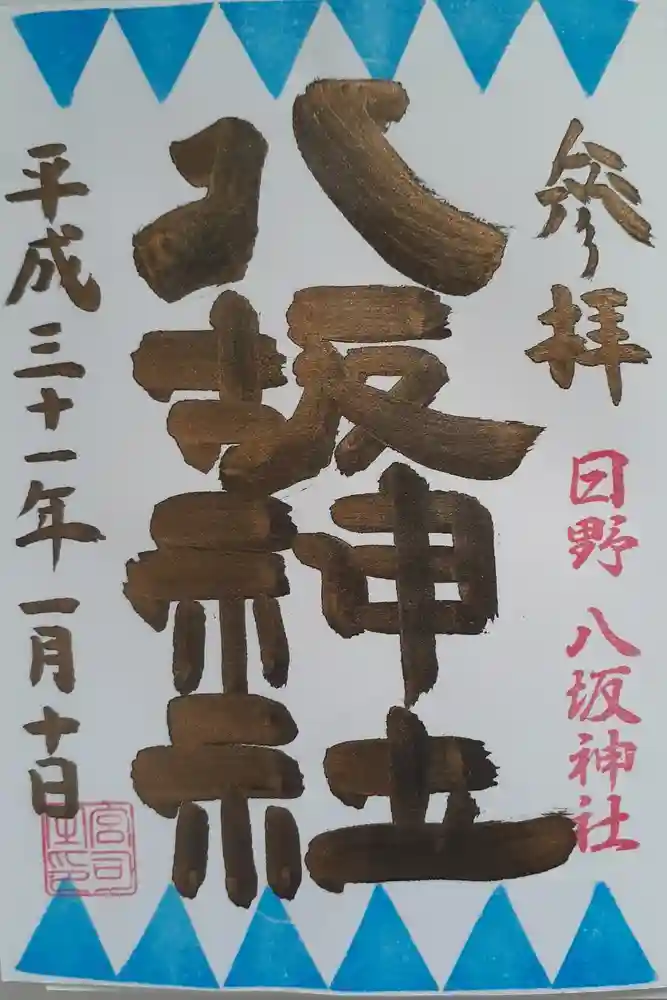 参拝
日野 八坂神社
八坂神社
平成三十一年一月十日
宮司之印